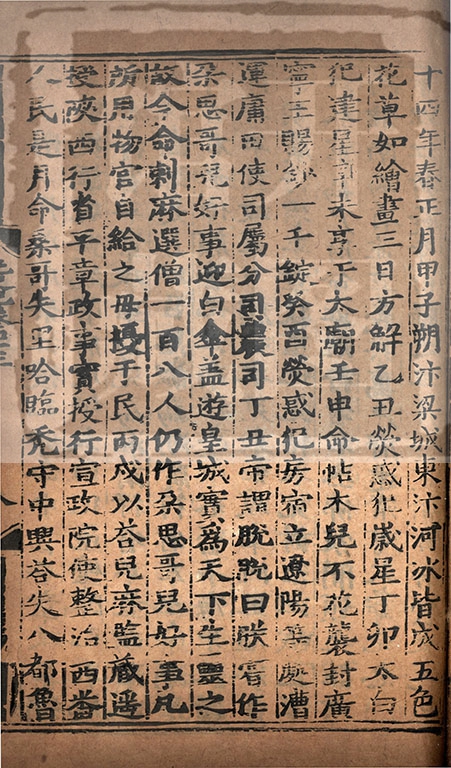 十四年春正月甲子朔汴梁城東汴河冰皆成五色
花草如繪畫三日方解乙丑熒惑犯歲星丁卯太白
犯建星辛未享于太廟壬申命帖木兒不花襲封廣
寧王賜鈔一千錠癸酉熒惑犯房宿立遼陽等處漕
運庸田使司屬分司農司丁丑帝謂脫脫曰朕嘗作
朵思哥兒好事迎白傘盖遊皇城實為天下生靈之
故今命剌麻選僧一百八人仍作朵思哥兒好事凡
所用物官自給之毋擾于民丙戌以荅兒麻監藏遥
授陝西行省平章政事實授行宣政院使整治西番
人民是月命桑哥失里哈臨禿守中興荅失八都魯